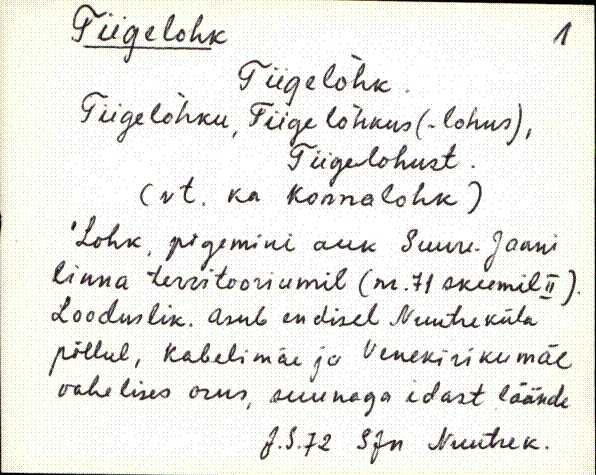 Tiigelohk 1
Tiigelòhk.
Tiigelòhku, Tiigelòhkus (-lohus),
Tiigelohust.
(vt. ka Konnalohk)
Lohk, pigemini auk Suure-Jaani
linna territooriumil (nr. 71 skeemil II).
Looduslik. Asub endisel Nuutreküla
põllul, Kabelimäe ja Venekirikumäe
vahelises orus, suunaga idast läände
J.S.72 SJn Nuutrek.